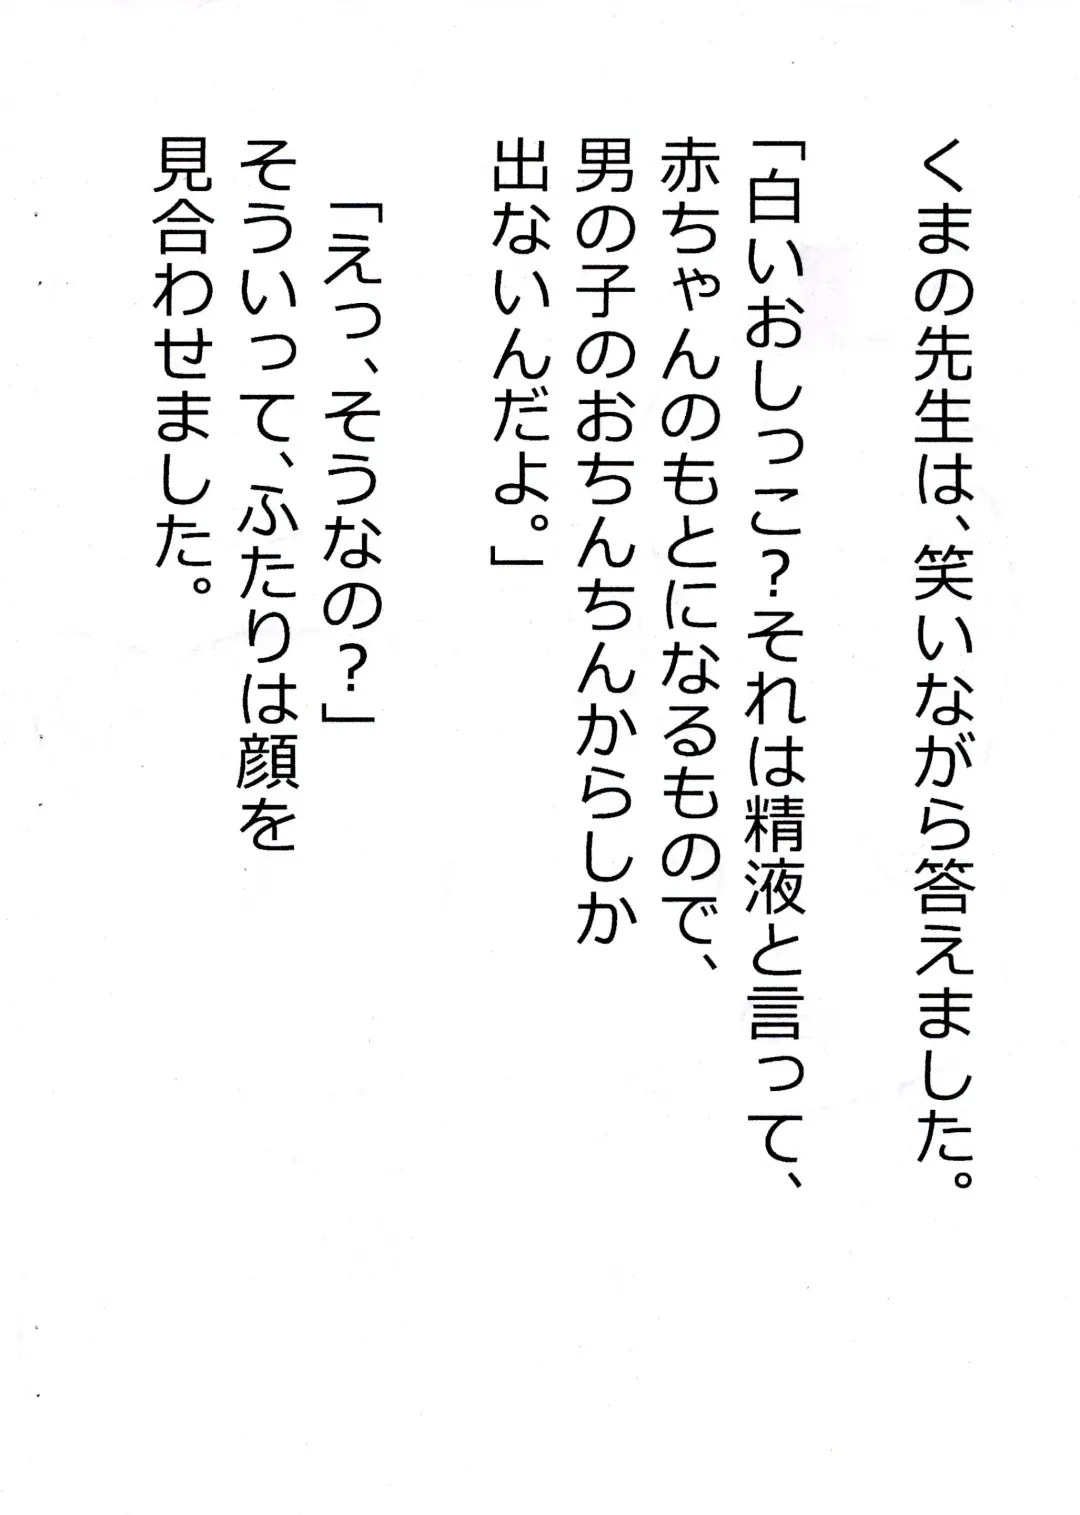 くまの先生は、笑いながら答えました。
「白いおしっこ？それは精液と言って、
赤ちゃんのもとになるもので、
男の子のおちんちんからしか
出ないんだよ。」
「えっ、そうなの？」
そういって、ふたりは顔を
見合わせました。